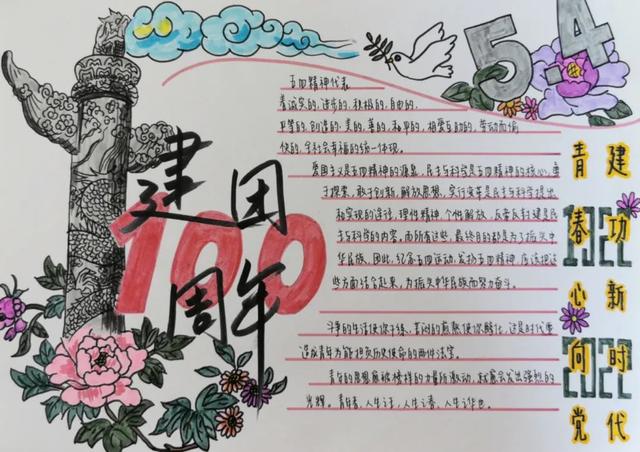 5.4
五四精神代表
着诚实的、进步的、积极的、自由的、
平等的、创造的、美的、善的、和平的、相爱互助的、劳动而愉
快的、全社会幸福的统一体现。
爱国主义是五四精神的源泉,民主与科学是五四精神的核心,勇
于探索、敢于创新、解放思想、实行变革是民主与科学提出
和实现的途径,理性精神、个性解放、反帝反封建是民
主与科学的内容。而所有这些,最终目的都是为了振兴中
华民族。因此,纪念五四运动、发扬五四精神,应该把这
些方面结合起来,为振兴中华民族而努力奋斗。
斗争的生活使你干练、苦闷的煎熬使你醇化,这是时代要
造成青年为能担负历史使命的两件法宝。
青年的思想愈被榜样的力量所激动,就愈会发出强烈的
光辉。青年者,人生之王,人生之春,人生之华也。
建团
100
周年
青春心向党
建功新时代
1922
2022